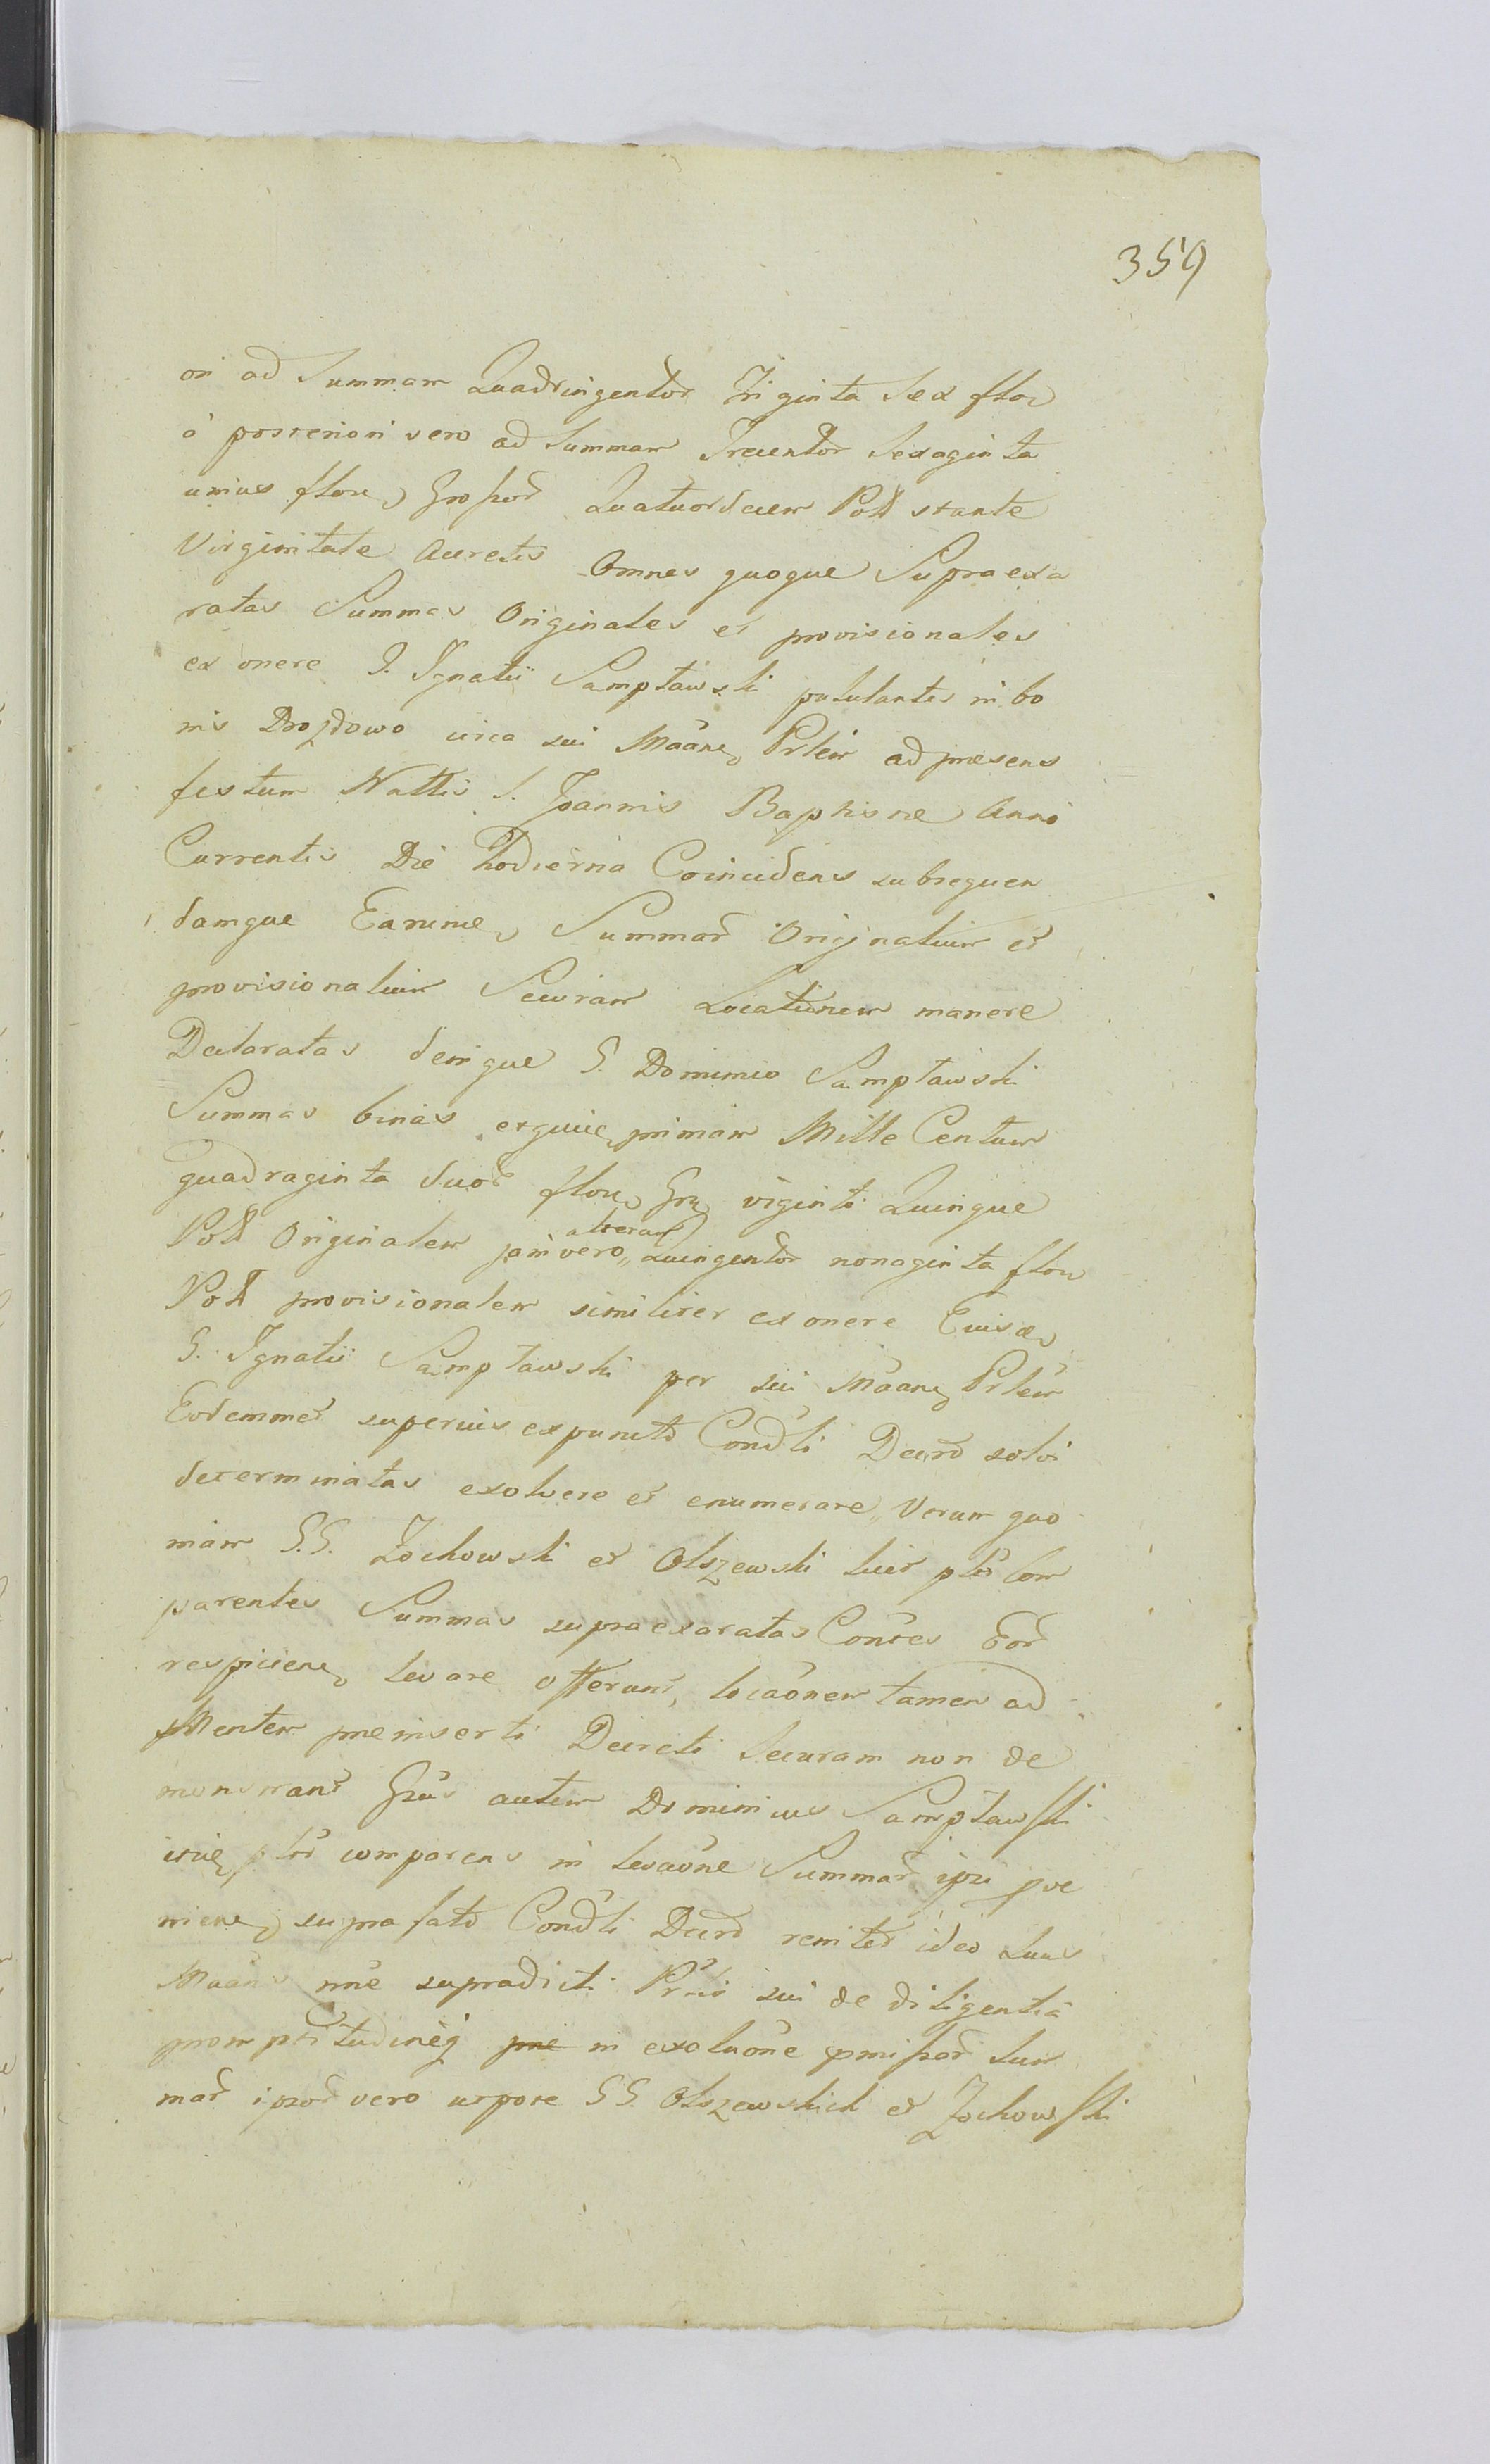 359
ori ad Summam Quadringentor Triginta Sex flor
à posteriori vero ad Summam Trecentor Sexaginta
unius flore Grossor Quatuordecem Poll stante
Virginitate Accretis Omnes quoque Supraexa
ratas Summas Originales et provisionales
ex onere G. Ignatii Sampławski pululantes in bo
nis Drozdowo circa sui Maane Prlem ad presens
festum Nattis S. Joannis Baptistae Anni
Currentis Die hodierna Coincidens subsequen
damque Earume Summar Originalium et
provisionalium Securam Locationem manere
Declaratas denique G. Dominico Sampławski
Summas binas exquie primam Mille Centum
quadraginta duor flore Gre viginti Quinque
Poll Originalem jam vero alteram Quingentor nonaginta flor
Poll provisionalem similiter ex onere Eiusde
G. Ignatii Sampławski per sui Maane Prlem
Eodemmet superius expuncto Condli Decro solvi
determinatas exolvere et enumerare, Verum quo
niam G.G. Zochowski et Olszewski licet pltr Com
parentes Summas supraexaratas Contes Eor
respiciene levare offerunt, locaonem tamen ad
Mentem preinserti Decreti Securam non de
monstrant Gsus autem Dominicus Sampławski
itide pltr comparens in levaone Summar ipsi pve
niene suprafato Condli Decro renitet ideo Suus
Maans nne supradicti Prlis sui de diligentia
promptitudineq in exoluone pmissor Sum
mar ipsor vero utpote GG. Olszewskich et Zochowski